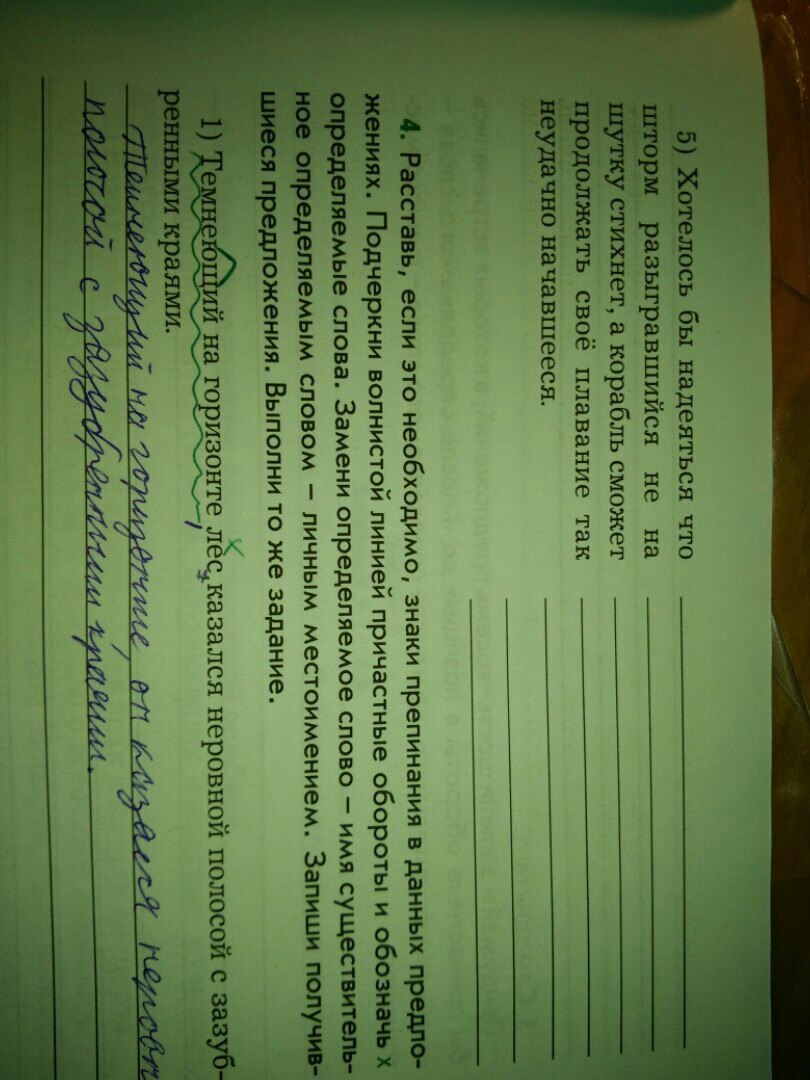 5) Хотелось бы надеяться что
шторм разыгравшийся не на
шутку стихнет, а корабль сможет
продолжать своё плавание так
неудачно начавшееся.
4. Расставь, если это необходимо, знаки препинания в данных предло-
жениях. Подчеркни волнистой линией причастные обороты и обозначь x
определяемые слова. Замени определяемое слово – имя существитель-
ное определяемым словом – личным местоимением. Запиши получив-
шиеся предложения. Выполни то же задание.
x
1) Темнеющий на горизонте лес, казался неровной полосой с зазуб-
ренными краями.
Темнеющий на горизонте, он казался неровн
полосой с зазубренными краями.